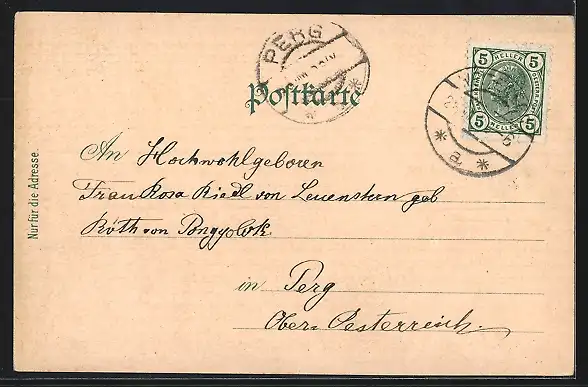 PERG
5 HELLER 5
5 HELLER 5
Postkarte
An Hochwohlgeboren
Frau Rosa Riedl von Leuenstern geb
Róth von Pongyolok
in Perg
Ober-Oesterreich.
Nur für die Adresse.